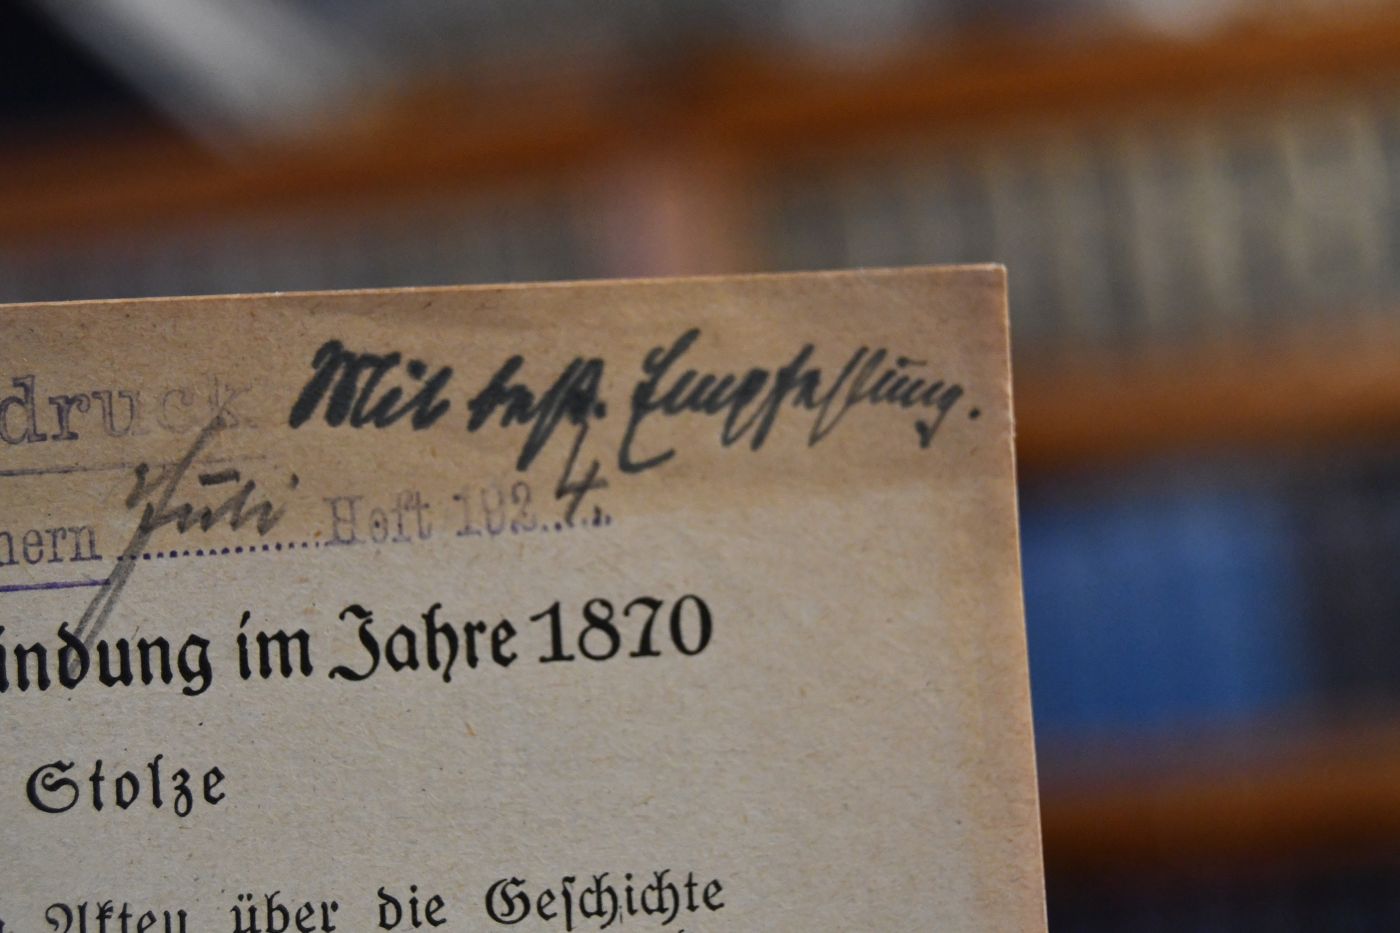 druck Mit besst. Empfehlung.
hern Juli Heft 1924
indung im Jahre 1870
Stolze
Akten über die Geschichte